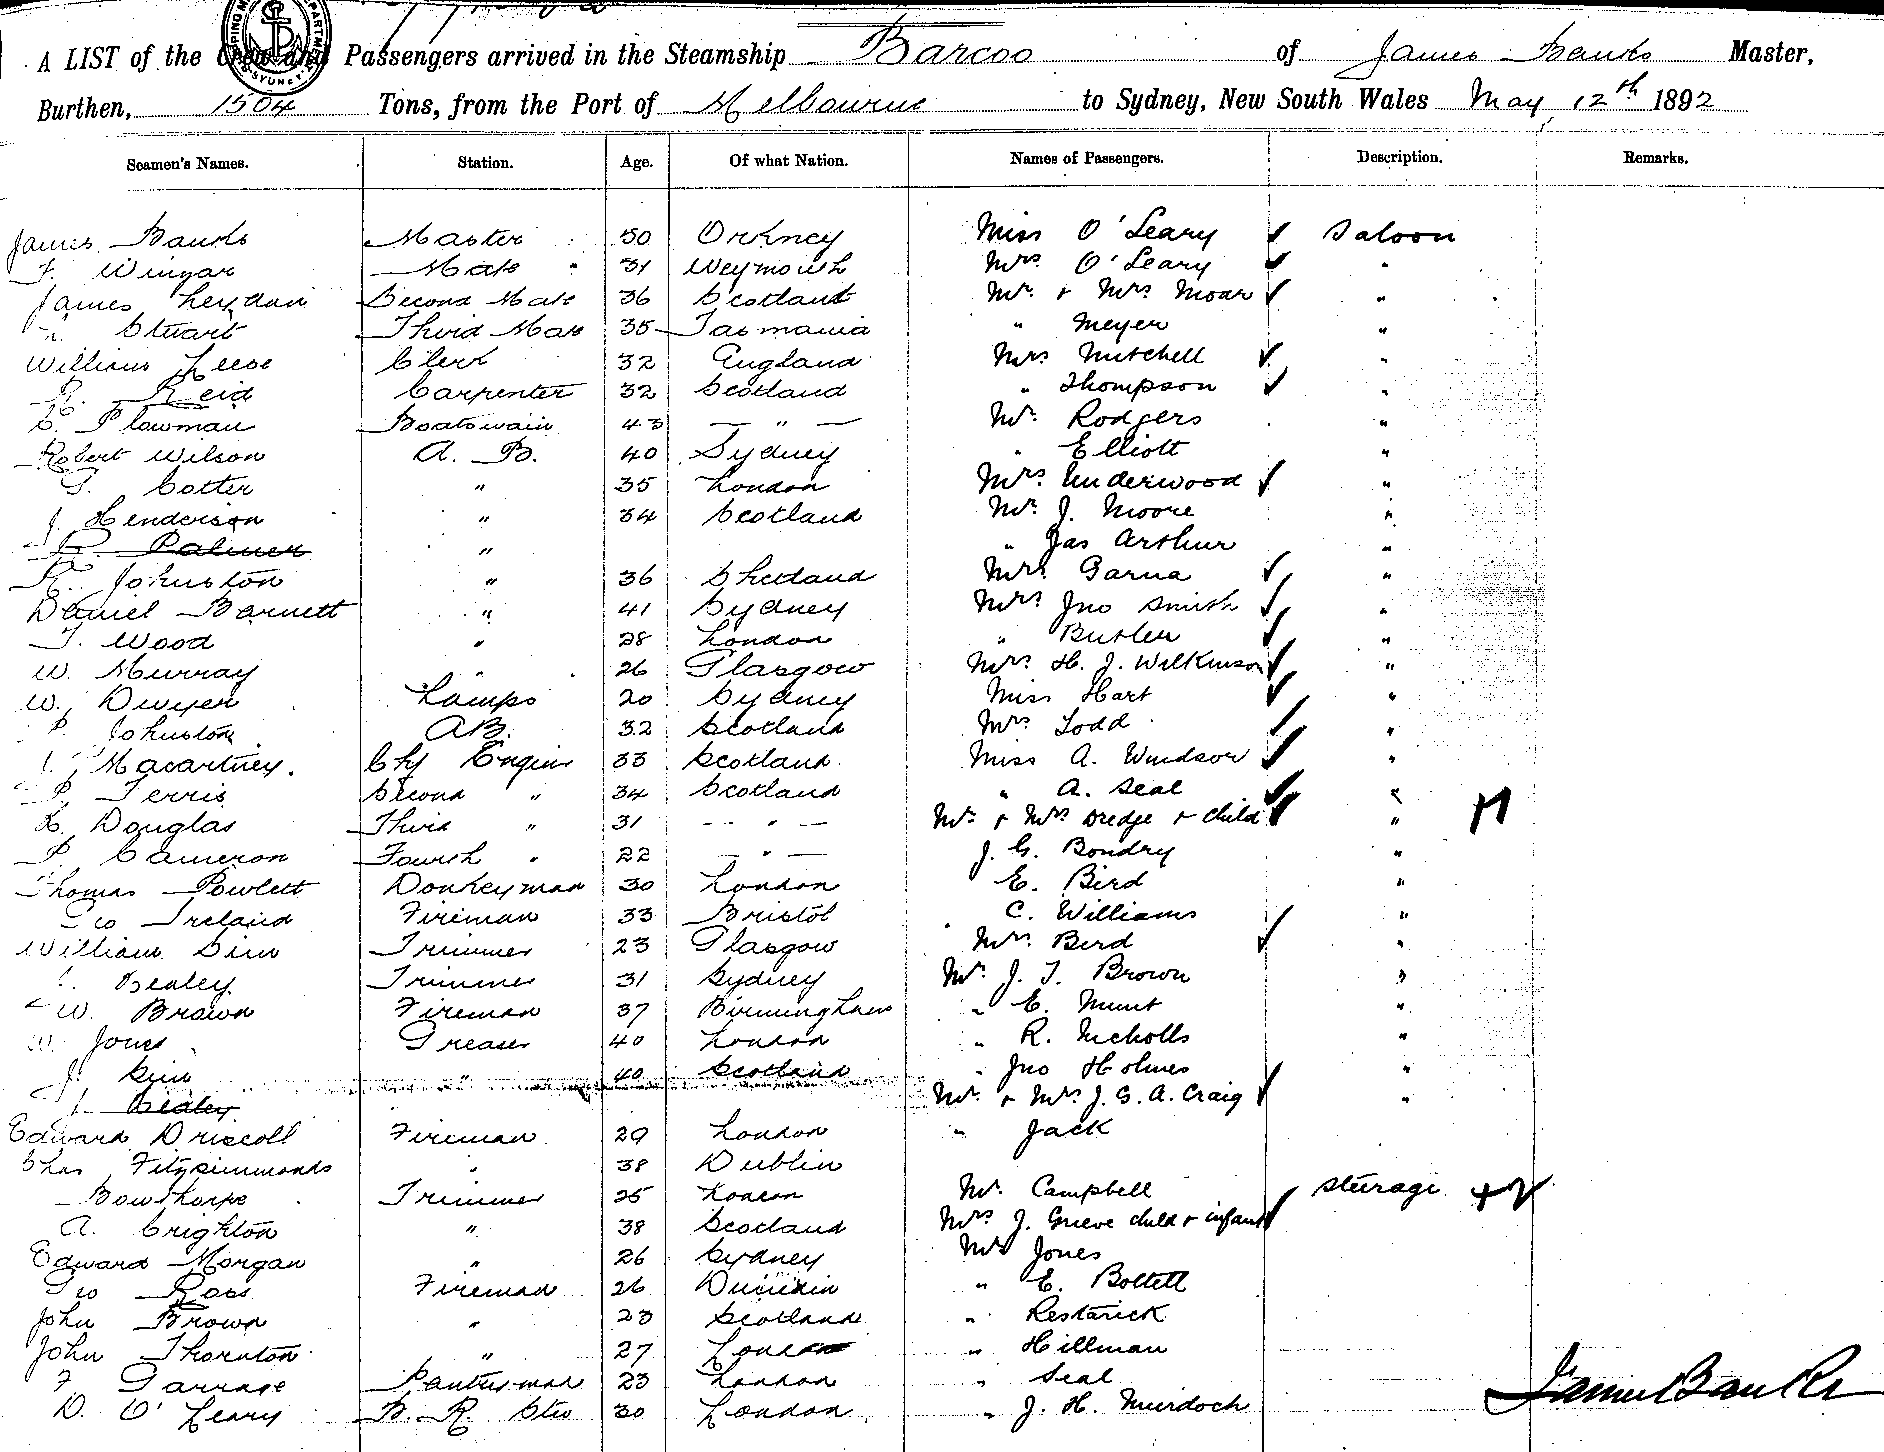 A LIST of the Crew and Passengers arrived in the Steamship Barcoo of James Banks Master,
Burthen, 1504 Tons, from the Port of Melbourne to Sydney, New South Wales May 12th 1892
Seamen's Names. Station. Age. Of what Nation. Names of Passengers. Description. Remarks.
James Banks Master 50 Orkney Miss O'Leary ✓ Saloon
Wingar Mate 31 Weymouth Mrs. O'Leary ✓ "
James Leydan Second Mate 36 Scotland Mr. & Mrs Moar ✓ "
Stuart Third Mate 35 Tasmania " Meyer "
William Leese Clerk 32 England Mrs Mitchell ✓ "
R. Reid Carpenter 32 Scotland " Thompson ✓ "
Plowman Boatswain 43 — " — Mr. Rodgers "
Robert Wilson A. B. 40 Sydney " Elliott "
T. Cotter " 35 London Mrs. Underwood ✓ "
J. Henderson " 34 Scotland Mr. J. Moore "
Palmer " " Jas Arthur "
Johnston " 36 Shetland Mrs. Garna ✓ "
Daniel Barnett " 41 Sydney Mrs. Jno Smith ✓ "
T. Wood " 28 London " Butler ✓ "
W. Murray " 26 Glasgow Mrs. H. J. Wilkinson ✓ "
W. Dwyer Lamps 20 Sydney Miss Hart ✓ "
P. Johnston AB. 32 Scotland Mrs. Todd ✓ "
Macartney. Chf Engine 33 Scotland. Miss A. Windsor ✓ "
P. Ferris Second " 34 Scotland " A. Seal ✓ "
Douglas Third " 31 — " — Mr. & Mrs. Dredge & child ✓ "
P. Cameron Fourth " 22 — " — J. G. Bondry "
Thomas Powlett Donkeyman 30 London E. Bird "
Geo Ireland Fireman 33 Bristol C. Williams "
William Dim Trimmer 23 Glasgow Mrs. Bird ✓ "
Bealey. Trimmer 31 Sydney Mr. J. T. Brown "
W. Brown Fireman 37 Birmingham " E. Munt "
W. Jones Greaser 40 London " R. Nicholls "
J. " 40 Scotland " Jno Holmes "
Bealey Mr. & Mrs J. G. A. Craig ✓ "
Edward Driscoll Fireman 29 London " Jack
Chas Fitzsimmonds " 38 Dublin
Bowthorpe Trimmer 25 London Mr. Campbell Steerage
A. Crighton " 38 Scotland Mrs J. Grieve child & infant ✓
Edward Morgan " 26 Sydney Mr Jones
Geo Ross Fireman 26 Dunedin " E. Bottell
John Brown " 23 Scotland " Restarick
John Thornton " 27 London " Hillman
F Garrage Pantryman 23 London " Seal
D. O'Leary B. R. Stw 30 London " J. H. Murdoch
James Banks